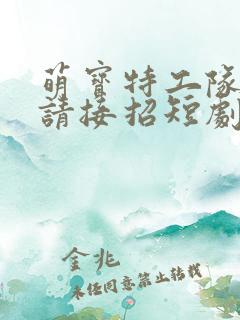 萌寶特工隊
請接招短劇
金兆
未经同意禁止转载